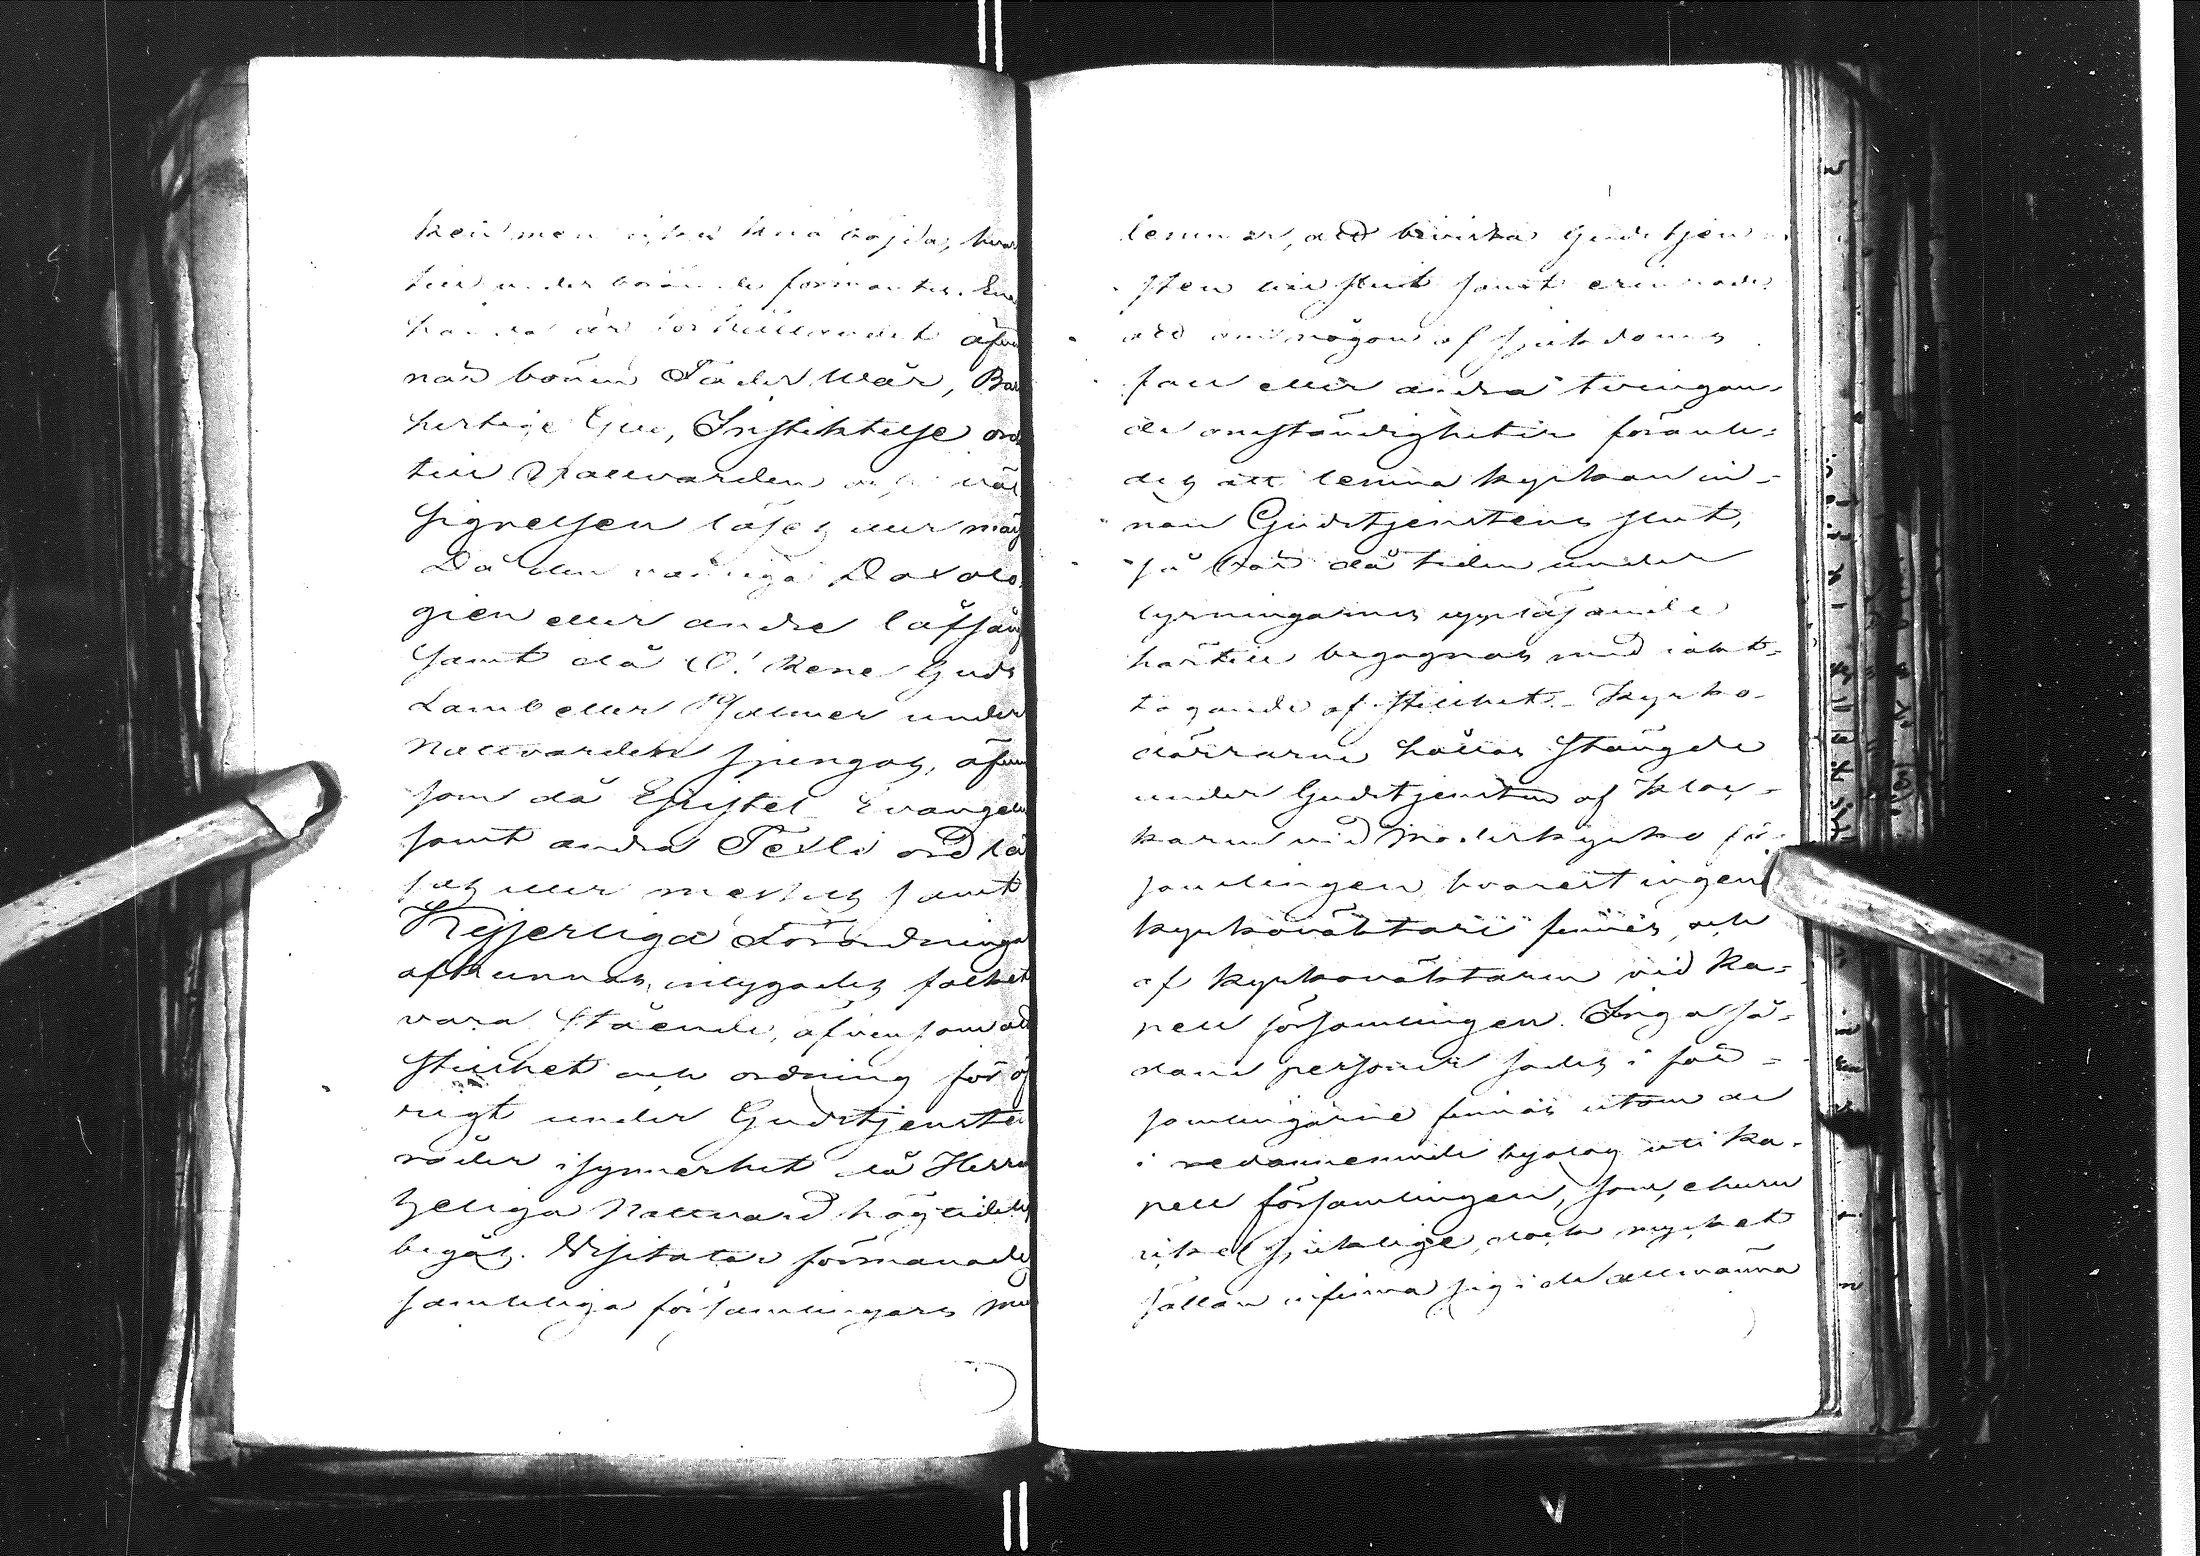 ken men icke knä böjda, hwar
till under borände förmantes. Ena
handa är förhållandet äfwen
när bönen Fader Wår, Barm
hertige Gud, Instiktelse orden
till Nattvarden och wäl
signelsen läses eller mäs
Då den vanliga Doxolo
gien eller andre låfsång
samt då O! Rene Guds
Lamb eller Psalmer under
Nattvarden sjunges, äfwen
som då Epistel Evangeli
samt andra Texter ord lä
ses eller messes samt
Kejserliga Förordningar
afkunnas, intygades folket
vara stående, äfvensom att
stillhet och ordning för öf
rigt under Gudstjensten
råder isynnerhet då Herrans
heliga Nattvard högtidligt
begås. Visitator förmanade
samteliga församlingars med
lemmar, att bivista Gudstjen
sten till slut samt erinrade
att om någon af sjukdoms
fall eller andra tvingan-
de omständigheter föranle-
des att lemna kyrkan in-
nan Gudstjenstens slut,
så bör då tiden under
lysningarnes uppläsande
härtill begagnas med iakt-
tagande af stillhet. Kyrko-
dörrarne hållas stängde
under Gudstjensten af kloc-
karen vid Moderkyrko för-
samlingen, hvarest ingen
kyrkoväktare finnes, och
af kyrkoväktaren vid Ka-
pell församlingen. Inga så-
dane personer sades i för-
samlingarne finnas utom de
i nedannemnde bylag uti Ka-
pell församlingen, som, ehuru
icke sjuklige, dock mycket
sällan infinna sig i de allmänna